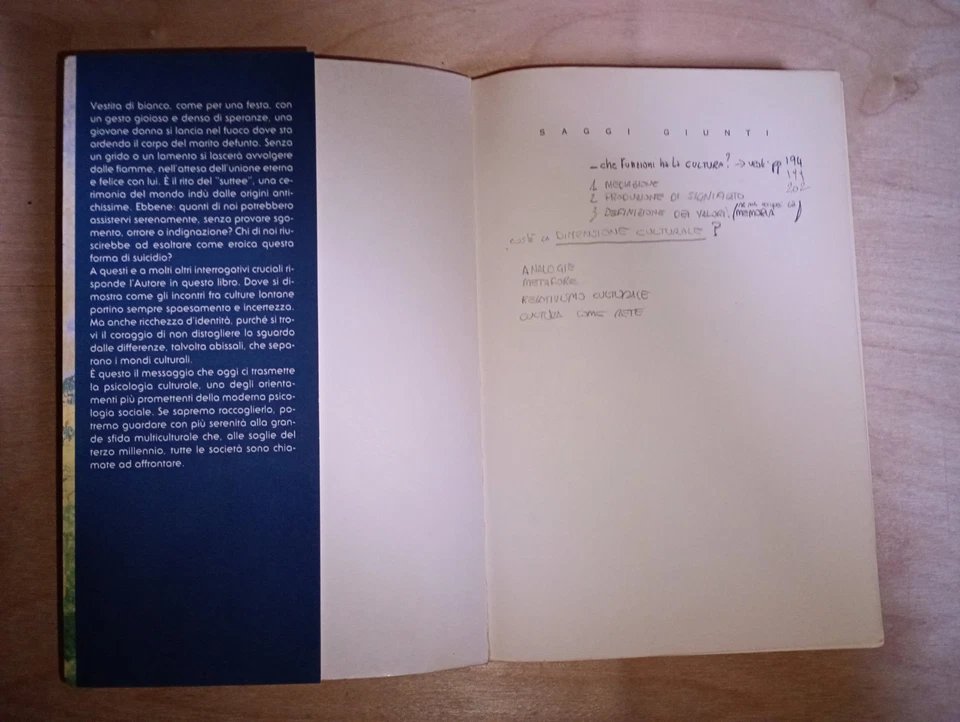 Vestita di bianco, come per una festa, con
un gesto gioioso e denso di speranze, una
giovane donna si lancia nel fuoco dove sta
ardendo il corpo del marito defunto. Senza
un grido o un lamento si lascerà avvolgere
dalle fiamme, nell'attesa dell'unione eterna
e felice con lui. È il rito del "suttee", una ce-
rimonia del mondo indù dalle origini anti-
chissime. Ebbene: quanti di noi potrebbero
assistervi serenamente, senza provare sgo-
mento, orrore o indignazione? Chi di noi riu-
scirebbe ad esaltare come eroica questa
forma di suicidio?
A questi e a molti altri interrogativi cruciali ri-
sponde l'Autore in questo libro. Dove si di-
mostra come gli incontri fra culture lontane
portino sempre spaesamento e incertezza.
Ma anche ricchezza d'identità, purché si tro-
vi il coraggio di non distogliere lo sguardo
dalle differenze, talvolta abissali, che sepa-
rano i mondi culturali.
È questo il messaggio che oggi ci trasmette
la psicologia culturale, uno degli orienta-
menti più promettenti della moderna psico-
logia sociale. Se sapremo raccoglierlo, po-
tremo guardare con più serenità alla gran-
de sfida multiculturale che, alle soglie del
terzo millennio, tutte le società sono chia-
mate ad affrontare.
SAGGI GIUNTI
- che funzioni ha la CULTURA? → vedi pp 194
1 MEDIAZIONE 199
2 PRODUZIONE DI SIGNIFICATO 202
3 DEFINIZIONE DEI VALORI (MEMORIA)
cos'è la DIMENSIONE CULTURALE?
ANALOGIE
METAFORE
RELATIVISMO CULTURALE
CULTURA COME RETE